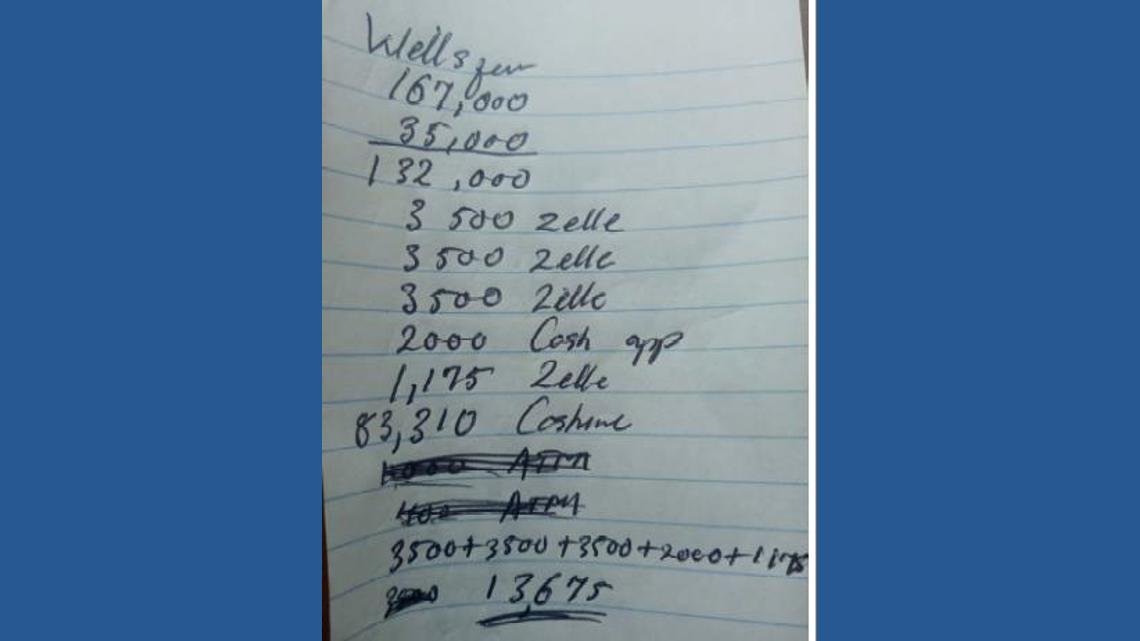 Wells
167,000
35,000
132,000
3 500 Zelle
3500 Zelle
3500 Zelle
2000 Cash app
1,175 Zelle
83,310
ATM
400 ATM
3500+3500+3500+2000+1175
13,675